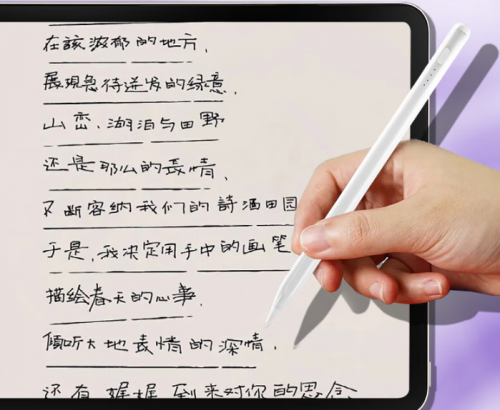 在該浓郁的地方，
展现急待迸发的绿意，
山峦、湖泊与田野
还是那么的表情，
不断容纳我们的詩酒田园
于是，我决定用手中的画笔
描绘春天的心事，
傾听大地表情的深情，
还有 娓娓 到来对你的思念